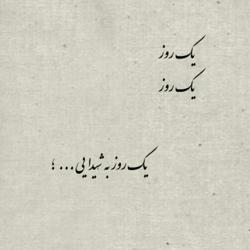 یک روز
یک روز
یک روز به شیدایی... ؛